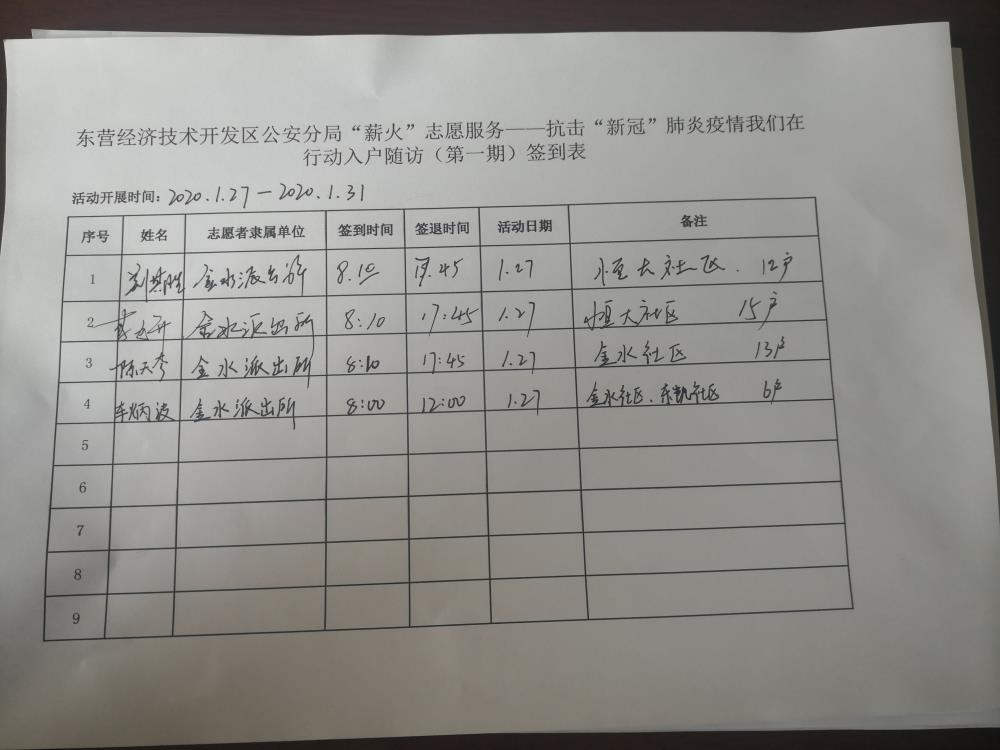 东营经济技术开发区公安分局“薪火”志愿服务——抗击“新冠”肺炎疫情我们在
行动入户随访（第一期）签到表
活动开展时间：2020.1.27－2020.1.31
序号 姓名 志愿者隶属单位 签到时间 签退时间 活动日期 备注
1 金水派出所 8.10 17.45 1.27 恒大社区. 12户
2 金水派出所 8:10 17:45 1.27 恒大社区 15户
3 陈天秀 金水派出所 8:10 17:45 1.27 金水社区 13户
4 车炳波 金水派出所 8:00 12:00 1.27 金水社区、东凯社区 6户
5
6
7
8
9